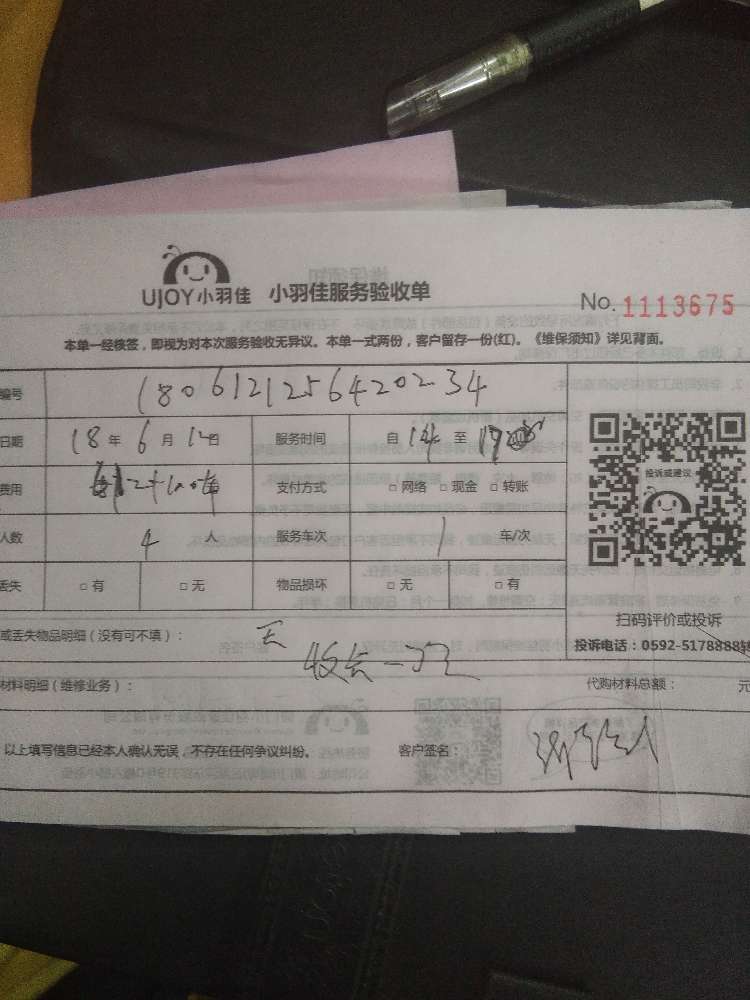 UJOY小羽佳 小羽佳服务验收单
No. 1113675
本单一经核签，即视为对本次服务验收无异议。本单一式两份，客户留存一份(红)。《维保须知》详见背面。
编号 1806121256420234
日期 18 年 6 月 12 日 服务时间 自 14 至 17
费用 支付方式 □ 网络 □ 现金 □ 转账
人数 4 人 服务车次 1 车/次
丢失 □ 有 □ 无 物品损坏 □ 无 □ 有
投诉或建议
扫码评价或投诉
投诉电话：0592-5178888转
或丢失物品明细（没有可不填）： 无
材料明细（维修业务）： 代购材料总额： 元
以上填写信息已经本人确认无误，不存在任何争议纠纷。 客户签名：